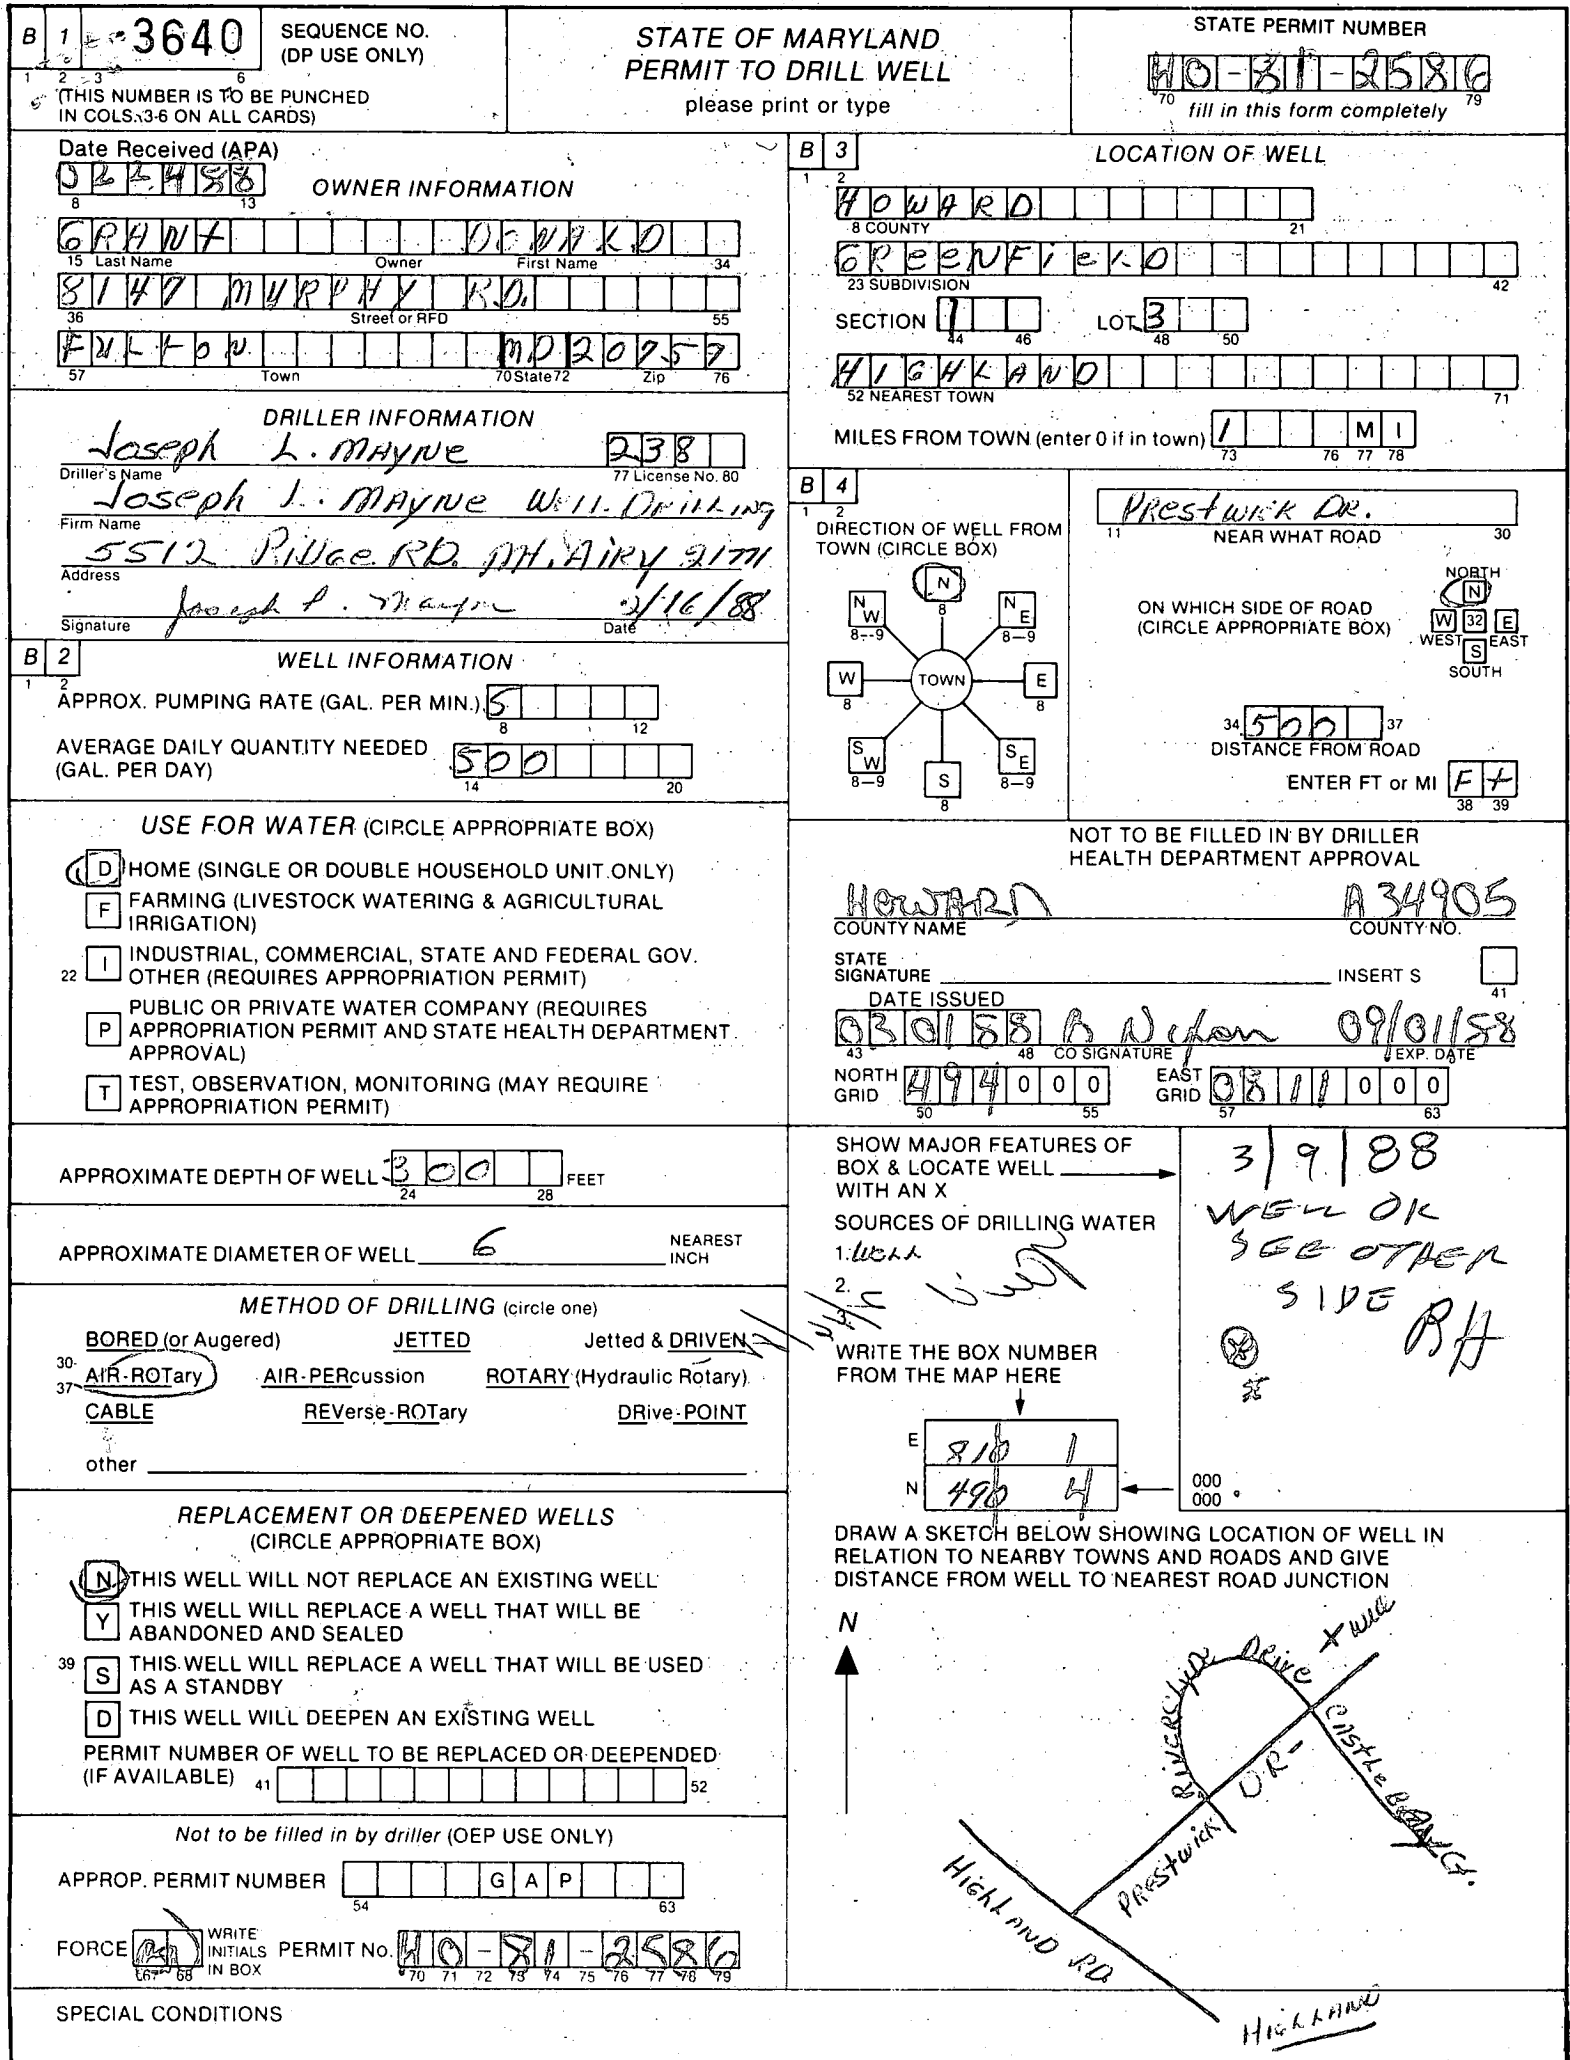 B 1 3640 SEQUENCE NO. (DP USE ONLY)
1 2 3 6
(THIS NUMBER IS TO BE PUNCHED
IN COLS. 3-6 ON ALL CARDS)
STATE OF MARYLAND
PERMIT TO DRILL WELL
please print or type
STATE PERMIT NUMBER
HO-81-2586
70 79
fill in this form completely
Date Received (APA)
022488
8 13
OWNER INFORMATION
GRANT DONALD
15 Last Name Owner First Name 34
8147 MURPHY RD.
36 Street or RFD 55
FULTON MD 20757
57 Town 70 State 72 Zip 76
DRILLER INFORMATION
Joseph L. MAYNE 238
Driller's Name 77 License No. 80
Joseph L. MAYNE Well Drilling
Firm Name
5512 Ridge RD. Mt. Airy 21771
Address
Joseph L. Mayne 2/16/88
Signature Date
B 2 WELL INFORMATION
1 2
APPROX. PUMPING RATE (GAL. PER MIN.) 5
8 12
AVERAGE DAILY QUANTITY NEEDED
(GAL. PER DAY) 500
14 20
USE FOR WATER (CIRCLE APPROPRIATE BOX)
D HOME (SINGLE OR DOUBLE HOUSEHOLD UNIT ONLY)
F FARMING (LIVESTOCK WATERING & AGRICULTURAL
IRRIGATION)
22 I INDUSTRIAL, COMMERCIAL, STATE AND FEDERAL GOV.
OTHER (REQUIRES APPROPRIATION PERMIT)
P PUBLIC OR PRIVATE WATER COMPANY (REQUIRES
APPROPRIATION PERMIT AND STATE HEALTH DEPARTMENT
APPROVAL)
T TEST, OBSERVATION, MONITORING (MAY REQUIRE
APPROPRIATION PERMIT)
APPROXIMATE DEPTH OF WELL 300 FEET
24 28
APPROXIMATE DIAMETER OF WELL 6 NEAREST
INCH
METHOD OF DRILLING (circle one)
BORED (or Augered) JETTED Jetted & DRIVEN
30-37 AIR-ROTary AIR-PERcussion ROTARY (Hydraulic Rotary)
CABLE REVerse-ROTary DRive-POINT
other
REPLACEMENT OR DEEPENED WELLS
(CIRCLE APPROPRIATE BOX)
N THIS WELL WILL NOT REPLACE AN EXISTING WELL
Y THIS WELL WILL REPLACE A WELL THAT WILL BE
ABANDONED AND SEALED
39 S THIS WELL WILL REPLACE A WELL THAT WILL BE USED
AS A STANDBY
D THIS WELL WILL DEEPEN AN EXISTING WELL
PERMIT NUMBER OF WELL TO BE REPLACED OR DEEPENDED
(IF AVAILABLE) 41 52
Not to be filled in by driller (OEP USE ONLY)
APPROP. PERMIT NUMBER G A P
54 63
FORCE WRITE INITIALS IN BOX PERMIT No. HO-81-2586
67 68 70 71 72 73 74 75 76 77 78 79
SPECIAL CONDITIONS
B 3 LOCATION OF WELL
1 2
HOWARD
8 COUNTY 21
GREENFIELD
23 SUBDIVISION 42
SECTION 1 LOT 3
44 46 48 50
HIGHLAND
52 NEAREST TOWN 71
MILES FROM TOWN (enter 0 if in town) 1 M I
73 76 77 78
B 4
1 2
DIRECTION OF WELL FROM
TOWN (CIRCLE BOX)
N
8
NW NE
8-9 8-9
W TOWN E
8 8
SW SE
8-9 8-9
S
8
Prestwick DR.
11 NEAR WHAT ROAD 30
ON WHICH SIDE OF ROAD
(CIRCLE APPROPRIATE BOX)
NORTH
N
W 32 E
WEST EAST
S
SOUTH
34 500 37
DISTANCE FROM ROAD
ENTER FT or MI Ft
38 39
NOT TO BE FILLED IN BY DRILLER
HEALTH DEPARTMENT APPROVAL
HOWARD A 34905
COUNTY NAME COUNTY NO.
STATE
SIGNATURE INSERT S
41
DATE ISSUED
030188 B Nixon 09/01/88
43 48 CO SIGNATURE EXP. DATE
NORTH GRID 494000 EAST GRID 0811000
50 55 57 63
SHOW MAJOR FEATURES OF
BOX & LOCATE WELL
WITH AN X
SOURCES OF DRILLING WATER
1. Well
2.
3.
WRITE THE BOX NUMBER
FROM THE MAP HERE
E 810 1
N 490 4
3/9/88
WELL OK
SEE OTHER
SIDE BH
000
000
DRAW A SKETCH BELOW SHOWING LOCATION OF WELL IN
RELATION TO NEARBY TOWNS AND ROADS AND GIVE
DISTANCE FROM WELL TO NEAREST ROAD JUNCTION
N
X Well
RiverClyde Drive
Prestwick DR.
Highland RD.
HIGHLAND